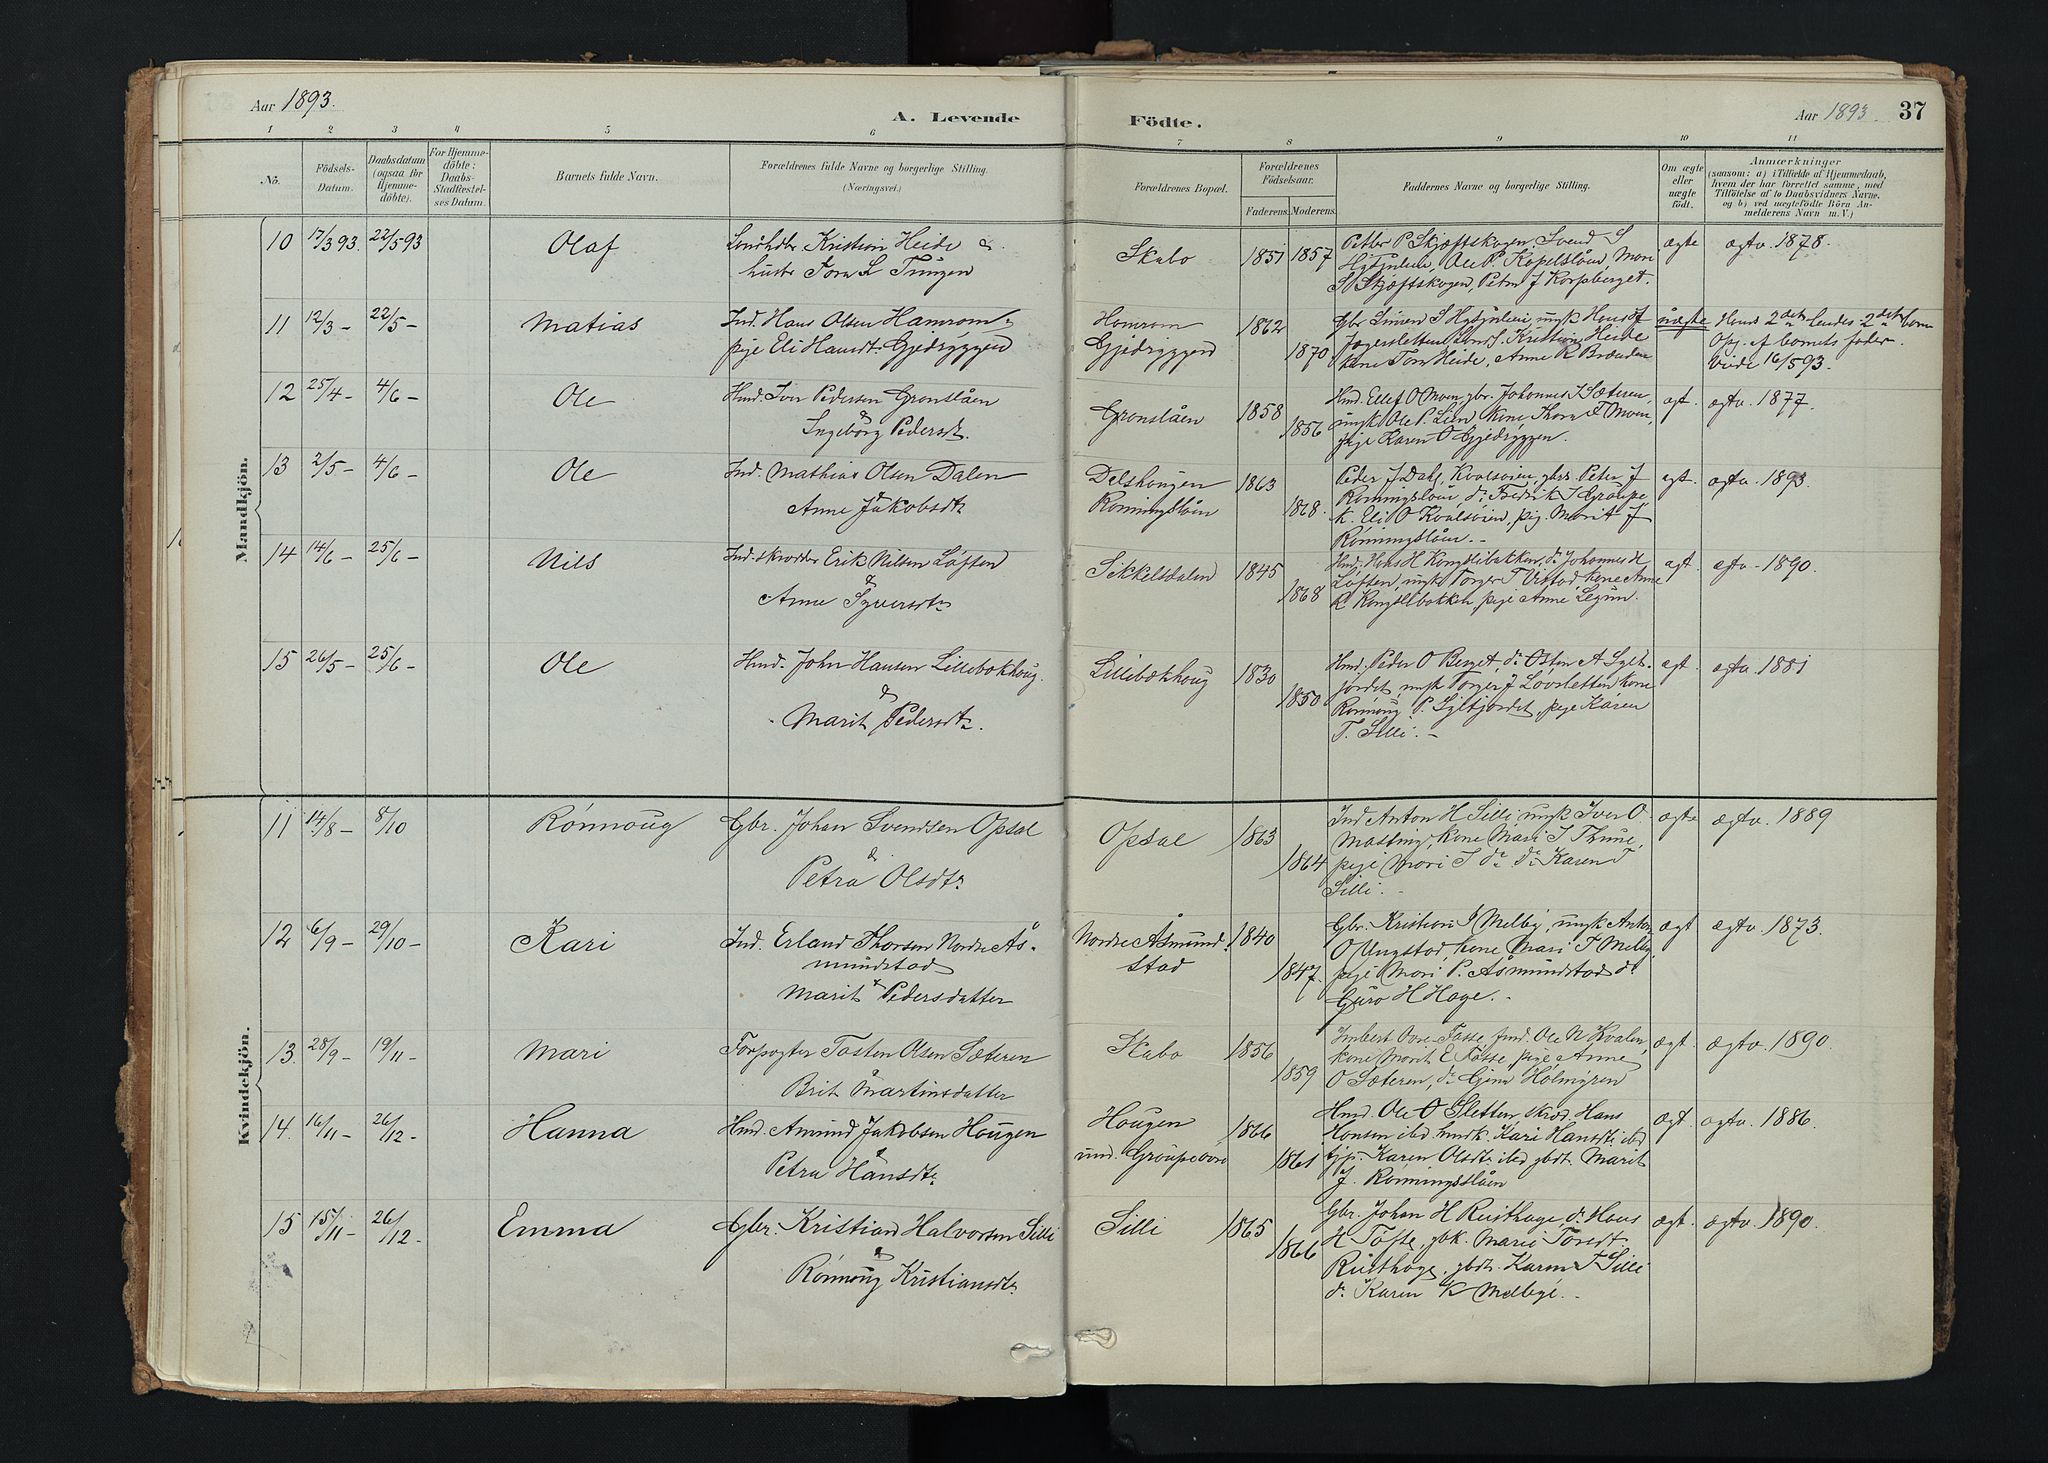 Aar 1893.
A. Levende
Födte.
Aar 1893. 37
1 2 3 4 5 6 7 8 9 10 11
No.
Födsels-
Datum.
Daabsdatum
(ogsaa for
Hjemme-
döbte).
For Hjemme-
döbte:
Daabs-
Stadfæstel-
ses Datum.
Barnets fulde Navn.
Forældrenes fulde Navne og borgerlige Stilling.
(Næringsvei.)
Forældrenes Bopæl.
Forældrenes
Födselsaar.
Faderens. Moderens.
Faddernes Navne og borgerlige Stilling.
Om ægte
eller
uægte
födt.
Anmærkninger
(saasom: a) i Tilfælde af Hjemmedaab,
hvem der har forrettet samme, med
Tilföielse af to Daabsvidners Navne.
og b) ved uægtefödte Börn An-
melderens Navn m. V.)
Mandkjön.
10 17/3 93. 22/5 93 Olaf
Kristian Heide &
hustr Torn L Tungen
Skabo 1851 1857
Petter P Skjæftskogen, Svend S
Ole P Kopelslåen Mari
S Skjæftskogen, Petra J Korpberget.
ægte ægtv. 1878.
11 12/3 - 22/5 - Matias
Ind. Hans Olsen Hamrom &
pige Eli Hansdt. Gjedryggen
Homrom
Gjedryggen
1862 1870
Gbr Simen S ungk Hans J
Kristian Heide
kone Torn Heide, Anne R Brænden
uægte Hans 2det hendes 2det barn
Opg. af barnets fader.
16/5 93.
12 25/4 - 4/6 - Ole
Hmd. Iver Pedersen Gronslåen
&
Ingeborg Pedersdt.
Gronslåen 1858 1856
Hmd. Ellef O Moen, gbr. Johannes I Sæteren,
ungk Ole P. Lien kone, Thora F Moen,
pige Karen O Gjedryggen.
ægt. ægtv. 1877.
13 2/5 - 4/6 - Ole
Ind. Mathias Olsen Dalen
&
Anne Jakobsdt.
Delshougen
Ronningslåen
1863 1868.
Peder J Dahl, Kvalsøien, gbrs. Peter J
Ronningslåen d. Fredrik I Graupe
k. Eli O Kvalsøien, pig. Marit J
Rønningslåen. -
ægt. ægtv. 1893.
14 14/6 - 25/6 - Nils
Ind. skrædder Erik Nilsen Løften
&
Anne Syversdt.
Sikkelsdalen 1845 1868
Hmd. Hans H Kongslibakken, d. Johannes H
Løften, ungk Torger T Vistad, kone Anne
R Kongslibakken, pige Anne
ægt ægtv. 1890.
15 26/5 - 25/6 - Ole
Hmd. John Hansen Lillebækhoug.
&
Marit Pedersdt.
Lillebækhoug 1830 1850
Hmd. Peder O Berget, d. Østen A Sylt-
jordet, ungk Torger J Løvsletten kone
Rønnoug P. Syltjordet, pige Karen
T. Silli. -
ægt. ægtv. 1881
Kvindekjön.
11 14/8 - 8/10 Rønnoug
Gbr. Johan Svendsen Opsal
&
Petra Olsdt.
Opsal 1863 1864
Ind Anton H Silli, ungk Iver O.
kone Mari I Thune,
pige Mari I d. d. Karen T
Silli. -
ægte ægtv. 1889
12 6/9 - 29/10 - Kari
Ind. Erland Thorsen Nordre Ås-
mundstad
&
Marit Pedersdatter
Nordre Åsmund-
stad
1840 1847.
Gbr. Kristian I Melby, ungk Anton
O Ungstad, kone Mari T Melby,
pige Mari P. Åsmundstad d.
Guro H Hage. -
ægt ægtv. 1873.
13. 28/9 - 19/11 - Mari
Forpagter Tosten Olsen Sæteren
Brit Martinsdatter
Skabo 1856 1859
Ole N Kvalen,
kone Marit E Tøsse, pige Anne
O Sæteren, d. Holmgren
ægt. ægtv. 1890.
14. 16/11 - 26/12 - Hanna
Hmd. Amund Jakobsen Hougen
&
Petra Hansdt.
Hougen
und. Graupe
1866 1861
Hmd. Ole O Sletten, skræd. Hans
Hansen ibd. husk. Kari Hansdt. ibd
Karen Olsdt. ibd gbdt. Marit
J. Rønningslåen
ægt. ægtv. 1886.
15 15/11 - 26/12 - Emma
Gbr. Kristian Halvorsen Silli
&
Rønnoug Kristiansdt.
Silli 1865 1866
Gbr. Johan H Rusthage, d. Hans
H Tøfte, gbk. Mari Toredt.
Rusthage, gbdt. Karen T Silli
d. Karen K Melbye. -
ægt. ægtv. 1890.